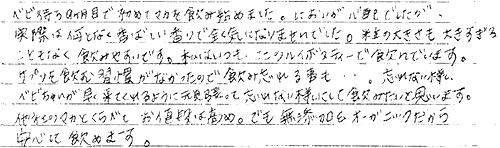 ベビ待ち9ヶ月目で初めてマカを飲み始めました。においが心配でしたが、
実際は何となく香ばしい香りで全く気になりませんでした。粒の大きさも大きすぎる
こともなく飲みやすいです。私はいつもルイボスティーで飲んでいます。
サプリを飲む習慣がなかったので飲み忘れる事も・・。忘れない様、
ベビちゃんが早く来てくれるように元気張って忘れない様にして飲みたいと思います。
他社のマカとくらべて お値段は高め。でも無添加&オーガニックだから
安心して飲めます。